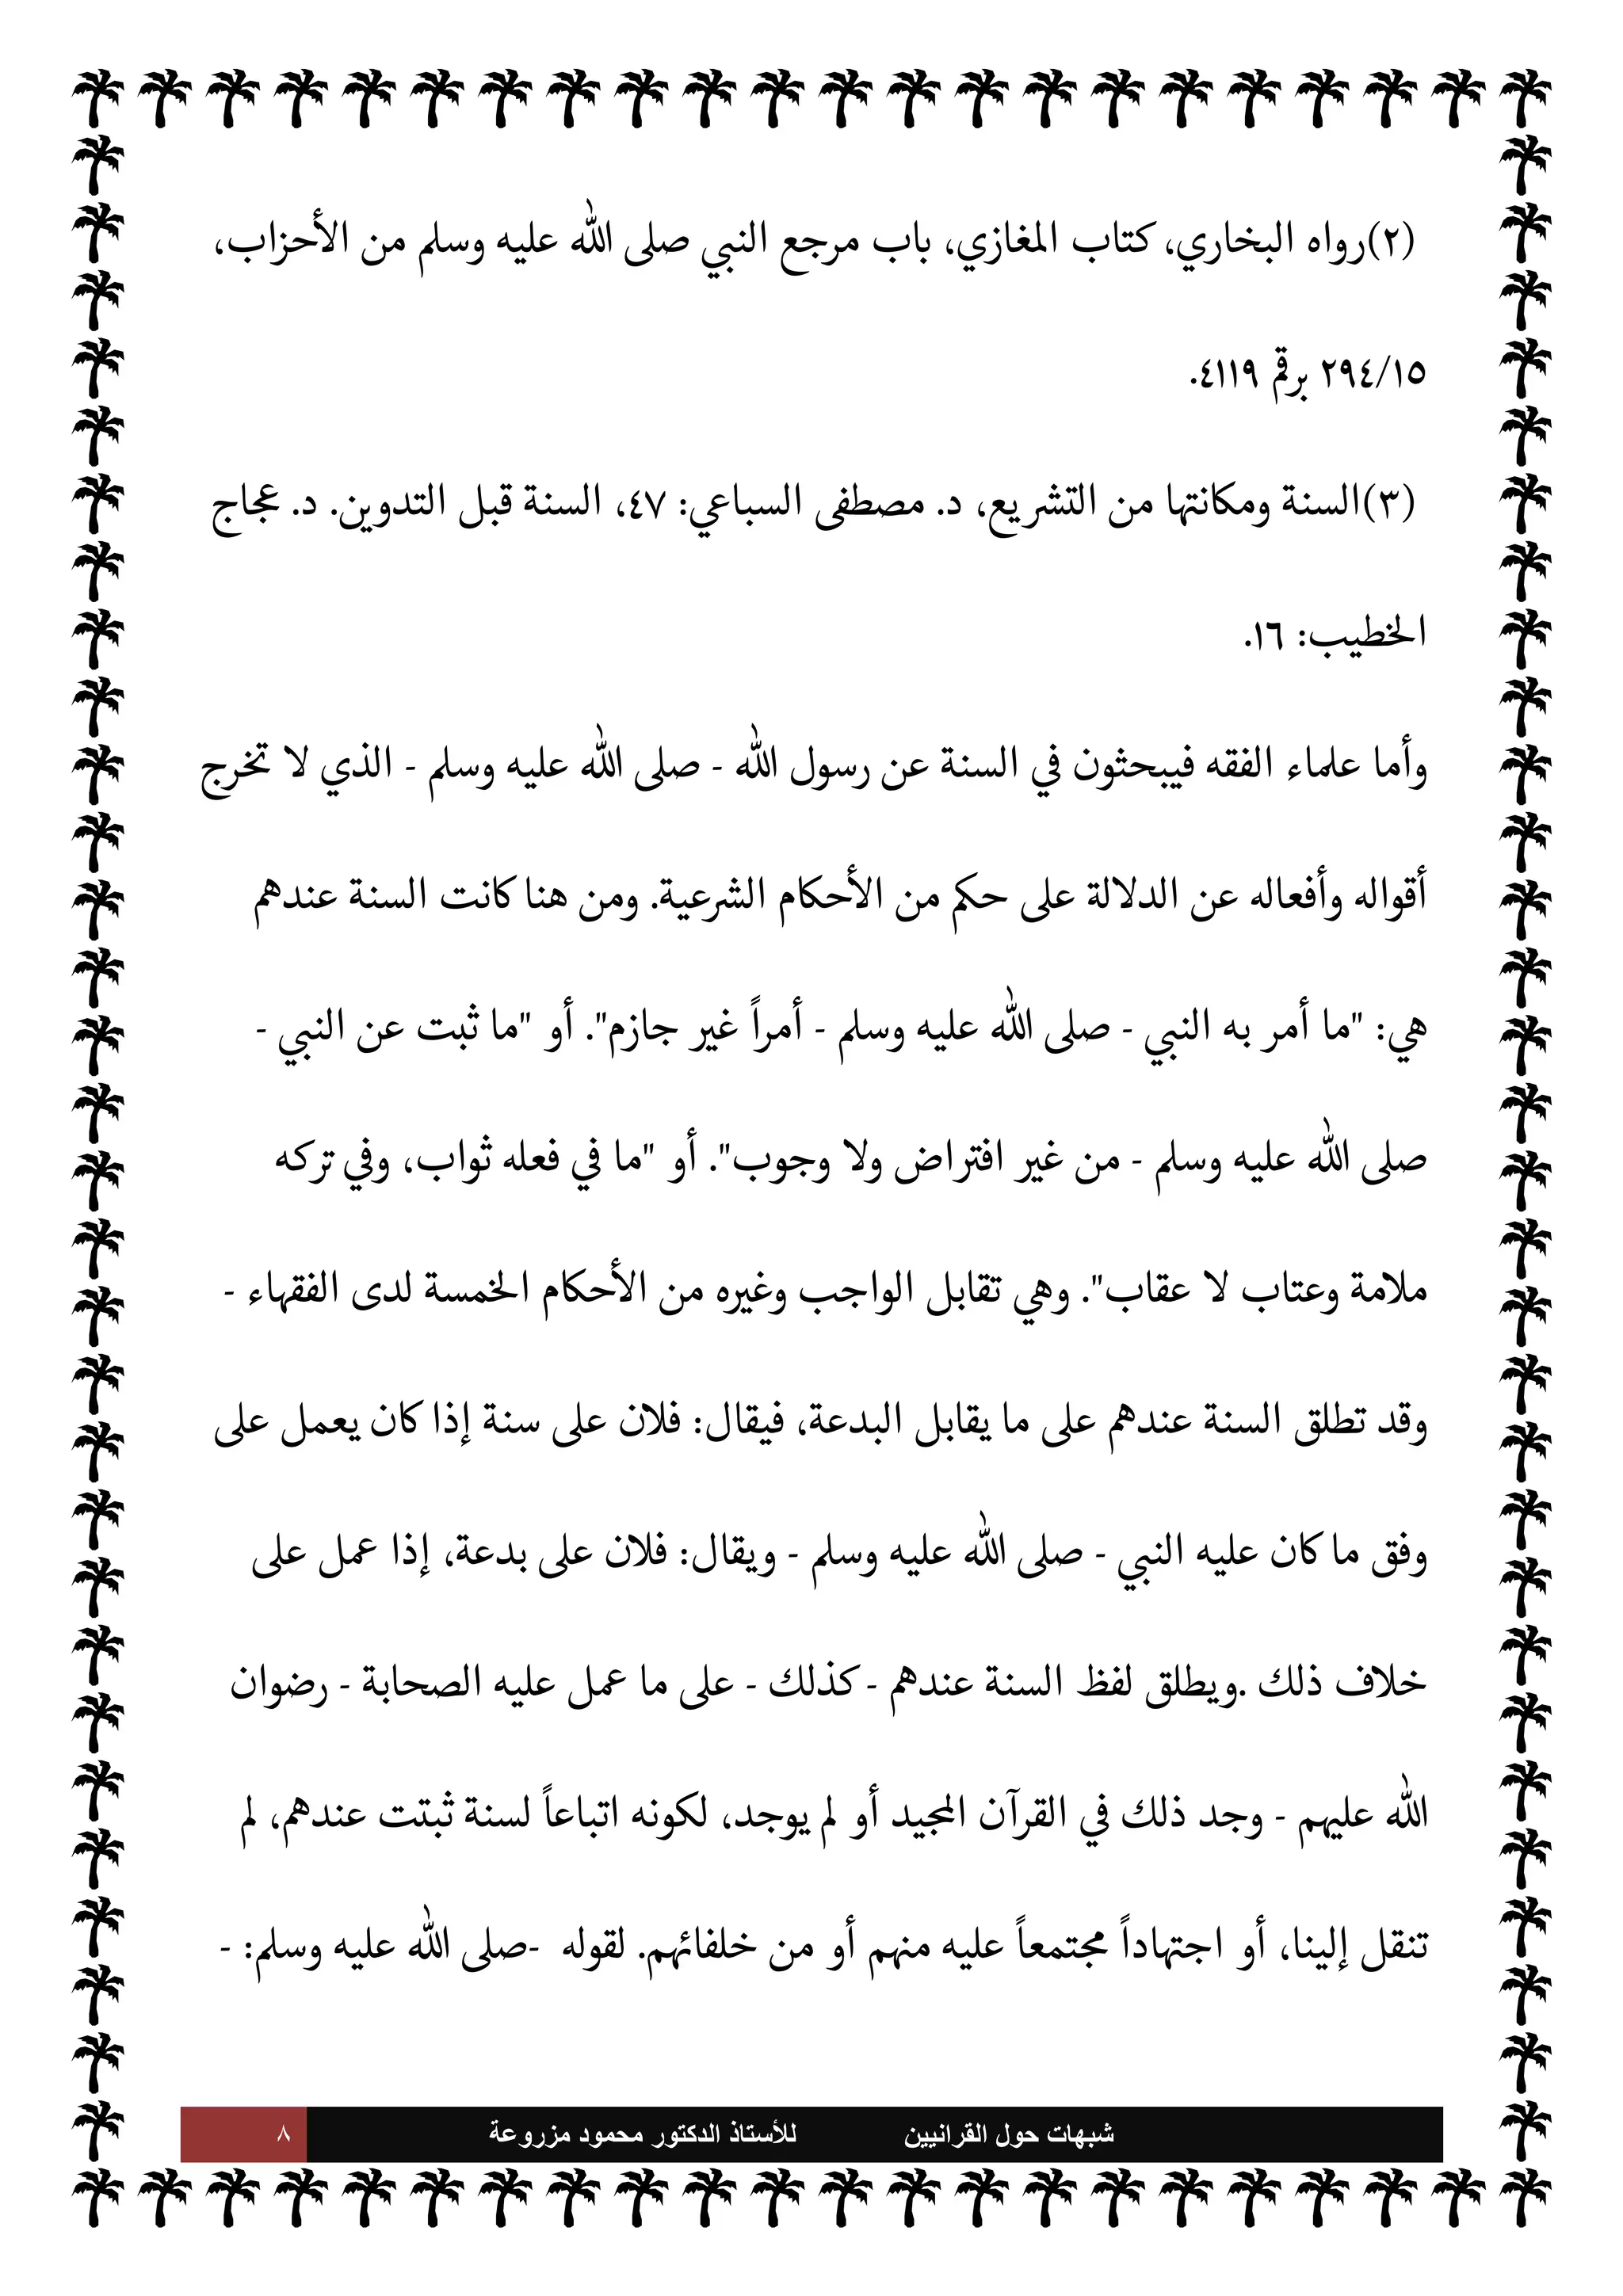 (٢)رواه البخاري، كتاب المغازي، باب مرجع النبي صلى الله عليه وسلم من الأحزاب،
٢٩٤/١٥ برقم ٤١١٩.
(٣)السنة ومكانتها من التشريع، د. مصطفى السباعي: ٤٧، السنة قبل التدوين. د. عجاج
الخطيب: ١٦.
وأما علماء الفقه فيبحثون في السنة عن رسول الله - صلى الله عليه وسلم - الذي لا تخرج
أقواله وأفعاله عن الدلالة على حكم من الأحكام الشرعية. ومن هنا كانت السنة عندهم
هي: "ما أمر به النبي - صلى الله عليه وسلم - أمراً غير جازم". أو "ما ثبت عن النبي -
صلى الله عليه وسلم - من غير افتراض ولا وجوب". أو "ما في فعله ثواب، وفي تركه
ملامة وعتاب لا عقاب". وهي تقابل الواجب وغيره من الأحكام الخمسة لدى الفقهاء -
وقد تطلق السنة عندهم على ما يقابل البدعة، فيقال: فلان على سنة إذا كان يعمل على
وفق ما كان عليه النبي - صلى الله عليه وسلم - ويقال: فلان على بدعة، إذا عمل على
خلاف ذلك .ويطلق لفظ السنة عندهم - كذلك - على ما عمل عليه الصحابة - رضوان
الله عليهم - وجد ذلك في القرآن المجيد أو لم يوجد، لكونه اتباعاً لسنة ثبتت عندهم، لم
تنقل إلينا، أو اجتهاداً مجتمعاً عليه منهم أو من خلفائهم. لقوله -صلى الله عليه وسلم: -
شبهات حول القرانيين للأستاذ الدكتور محمود مزروعة ٨